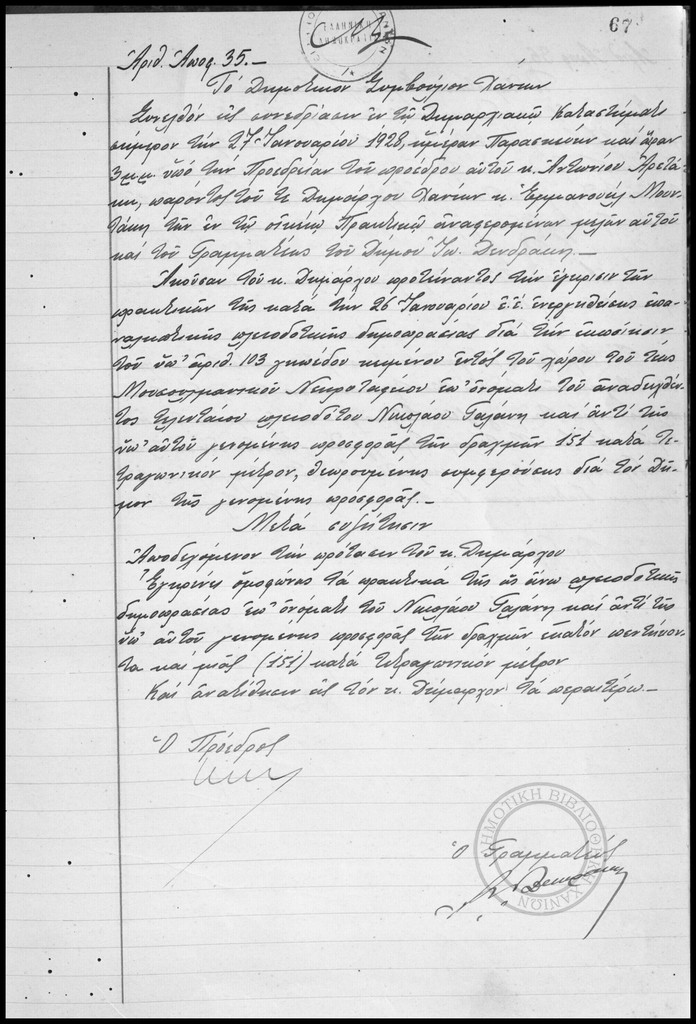 67
ΕΛΛΗΝΙΚΗ
ΔΗΜΟΚΡΑΤΙΑ
Αριθ. Αποφ. 35.—
Τό Δημοτικόν Συμβούλιον Χανίων
Συνελθόν εἰς συνεδρίασιν ἐν τῷ Δημαρχιακῷ Καταστήματι
σήμερον τήν 27 Ἰανουαρίου 1928, ἡμέραν Παρασκευήν καί ὥραν
3 μ.μ. ὑπό τήν Προεδρείαν τοῦ προέδρου αὐτοῦ κ. Ἀντωνίου Ἀρετά-
κη, παρόντος τοῦ κ. Δημάρχου Χανίων κ. Ἐμμανουήλ Μουν-
τάκη τῶν ἐν τῷ οἰκείῳ Πρακτικῷ ἀναφερομένων μελῶν αὐτοῦ
καί τοῦ Γραμματέως τοῦ Δήμου Ἰω. Δενδράκη.—
Ἀκοῦσαν τοῦ κ. Δημάρχου προτείναντος τήν ἔγκρισιν τῶν
πρακτικῶν τῆς κατά τήν 26 Ἰανουαρίου ἐ.ἔ. ἐνεργηθείσης ἐπα-
ναληπτικῆς πλειοδοτικῆς δημοπρασίας διά τήν ἐκποίησιν
τοῦ ὑπ' ἀριθ. 103 γηπέδου κειμένου ἐντός τοῦ χώρου τοῦ τέως
Μουσουλμανικοῦ Νεκροταφείου ἐπ' ὀνόματι τοῦ ἀναδειχθέν-
τος τελευταίου πλειοδότου Νικολάου Γαλάνη καί ἀντί τῆς
ὑπ' αὐτοῦ γενομένης προσφορᾶς τῶν δραχμῶν 151 κατά τε-
τραγωνικόν μέτρον, θεωρουμένης συμφερούσης διά τόν Δῆ-
μον τῆς γενομένης προσφορᾶς.—
Μετά συζήτησιν
Ἀποδεχόμενον τήν πρότασιν τοῦ κ. Δημάρχου
Ἐγκρίνει ὁμοφώνως τά πρακτικά τῆς ὡς ἄνω πλειοδοτικῆς
δημοπρασίας ἐπ' ὀνόματι τοῦ Νικολάου Γαλάνη καί ἀντί τῆς
ὑπ' αὐτοῦ γενομένης προσφορᾶς τῶν δραχμῶν ἑκατόν πεντήκον-
τα καί μιᾶς (151) κατά τετραγωνικόν μέτρον
Καί ἀνατίθησιν εἰς τόν κ. Δήμαρχον τά περαιτέρω.—
Ὁ Πρόεδρος
Ὁ Γραμματεύς
ΔΗΜΟΤΙΚΗ ΒΙΒΛΙΟΘΗΚΗ ΧΑΝΙΩΝ